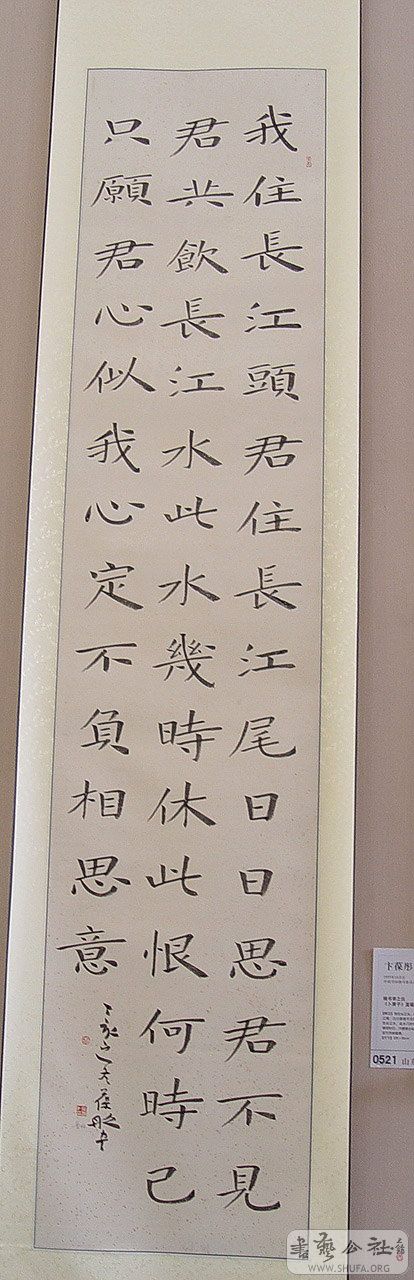 我住長江頭君住長江尾日日思君不見
君共飲長江水此水幾時休此恨何時已
只願君心似我心定不負相思意
卞葆彤
0521
書藝公社
WWW.SHUFA.ORG